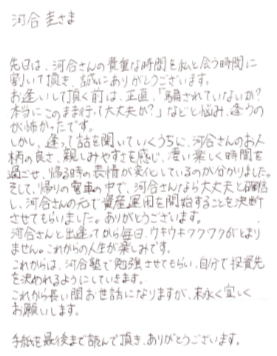 河合圭さま
先日は、河合さんの貴重な時間を私と会う時間に
割いて頂き、誠にありがとうございます。
お逢いして頂く前は、正直、「騙されていないか?
本当にこのまま行って大丈夫か?」などと悩み、逢うの
が怖かったです。
しかし、逢って話を聞いていくうちに、河合さんのお人
柄の良さ、親しみやすさを感じ、凄い楽しく時間を
過ごせ、帰る時の表情が変化しているのが分かりました。
そして、帰りの電車の中で、河合さんなら大丈夫と確信
し、河合さんの元で資産運用を開始することを決断
させてもらいました。ありがとうございます。
河合さんと出逢ってから毎日、ウキウキワクワクがとまり
ません。これからの人生が楽しみです。
これからは、河合塾で勉強させてもらい、自分で投資先
を決めれるようにしていきます。
これから長い間お世話になりますが、末永く宜しく
お願いします。
手紙を最後まで読んで頂き、ありがとうございます。